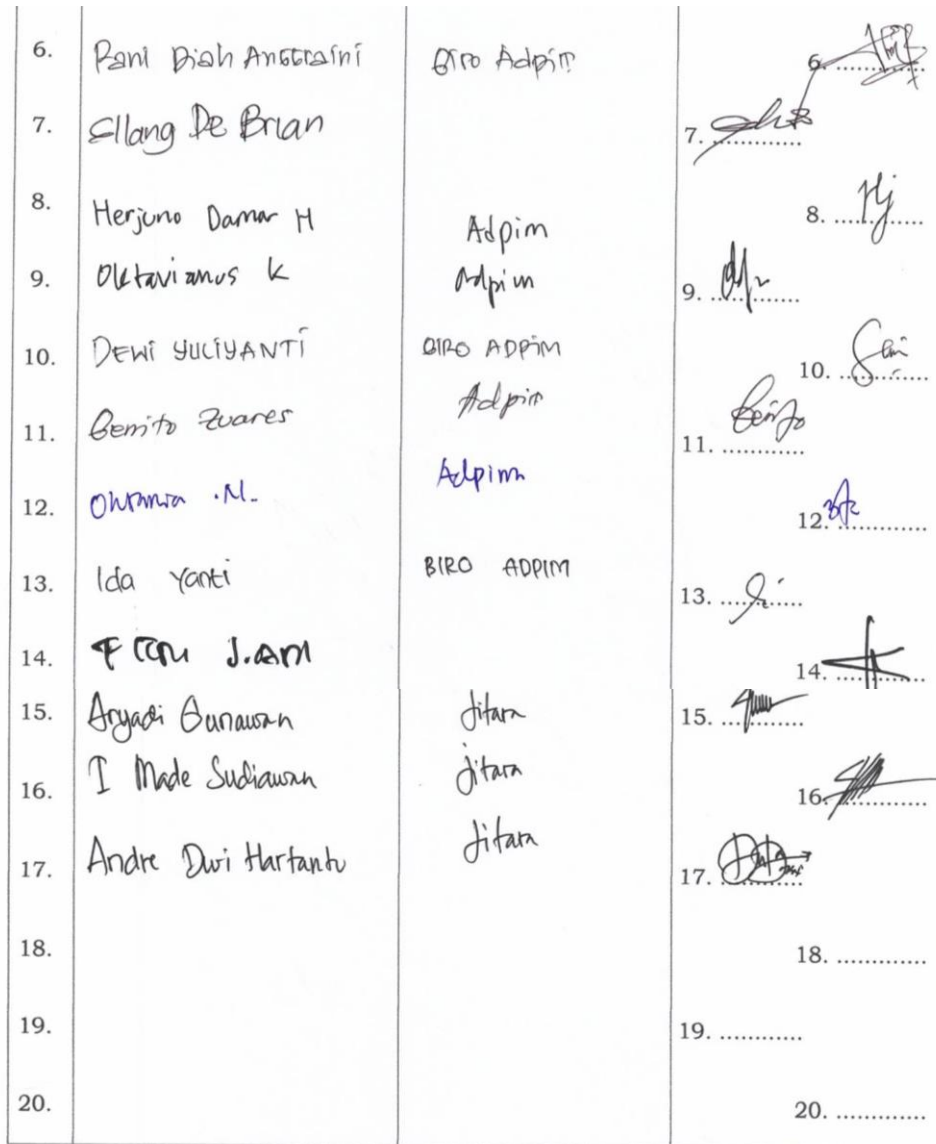 6. Rani Diah Anggraini Biro Adpim 6. ............
7. Ellang De Brian 7. ............
8. Herjuno Damar H Adpim 8. ............
9. Oktavianus K Adpim 9. ............
10. DEWI YULIYANTI BIRO ADPIM 10. ............
11. Benito Zuares Adpim 11. ............
12. .N. Adpim 12. ............
13. Ida Yanti BIRO ADPIM 13. ............
14. 14. ............
15. Aryadi Gunawan Jitara 15. ............
16. I Made Sudiawan Jitara 16. ............
17. Andre Dwi Hartanto Jitara 17. ............
18. 18. ............
19. 19. ............
20. 20. ............